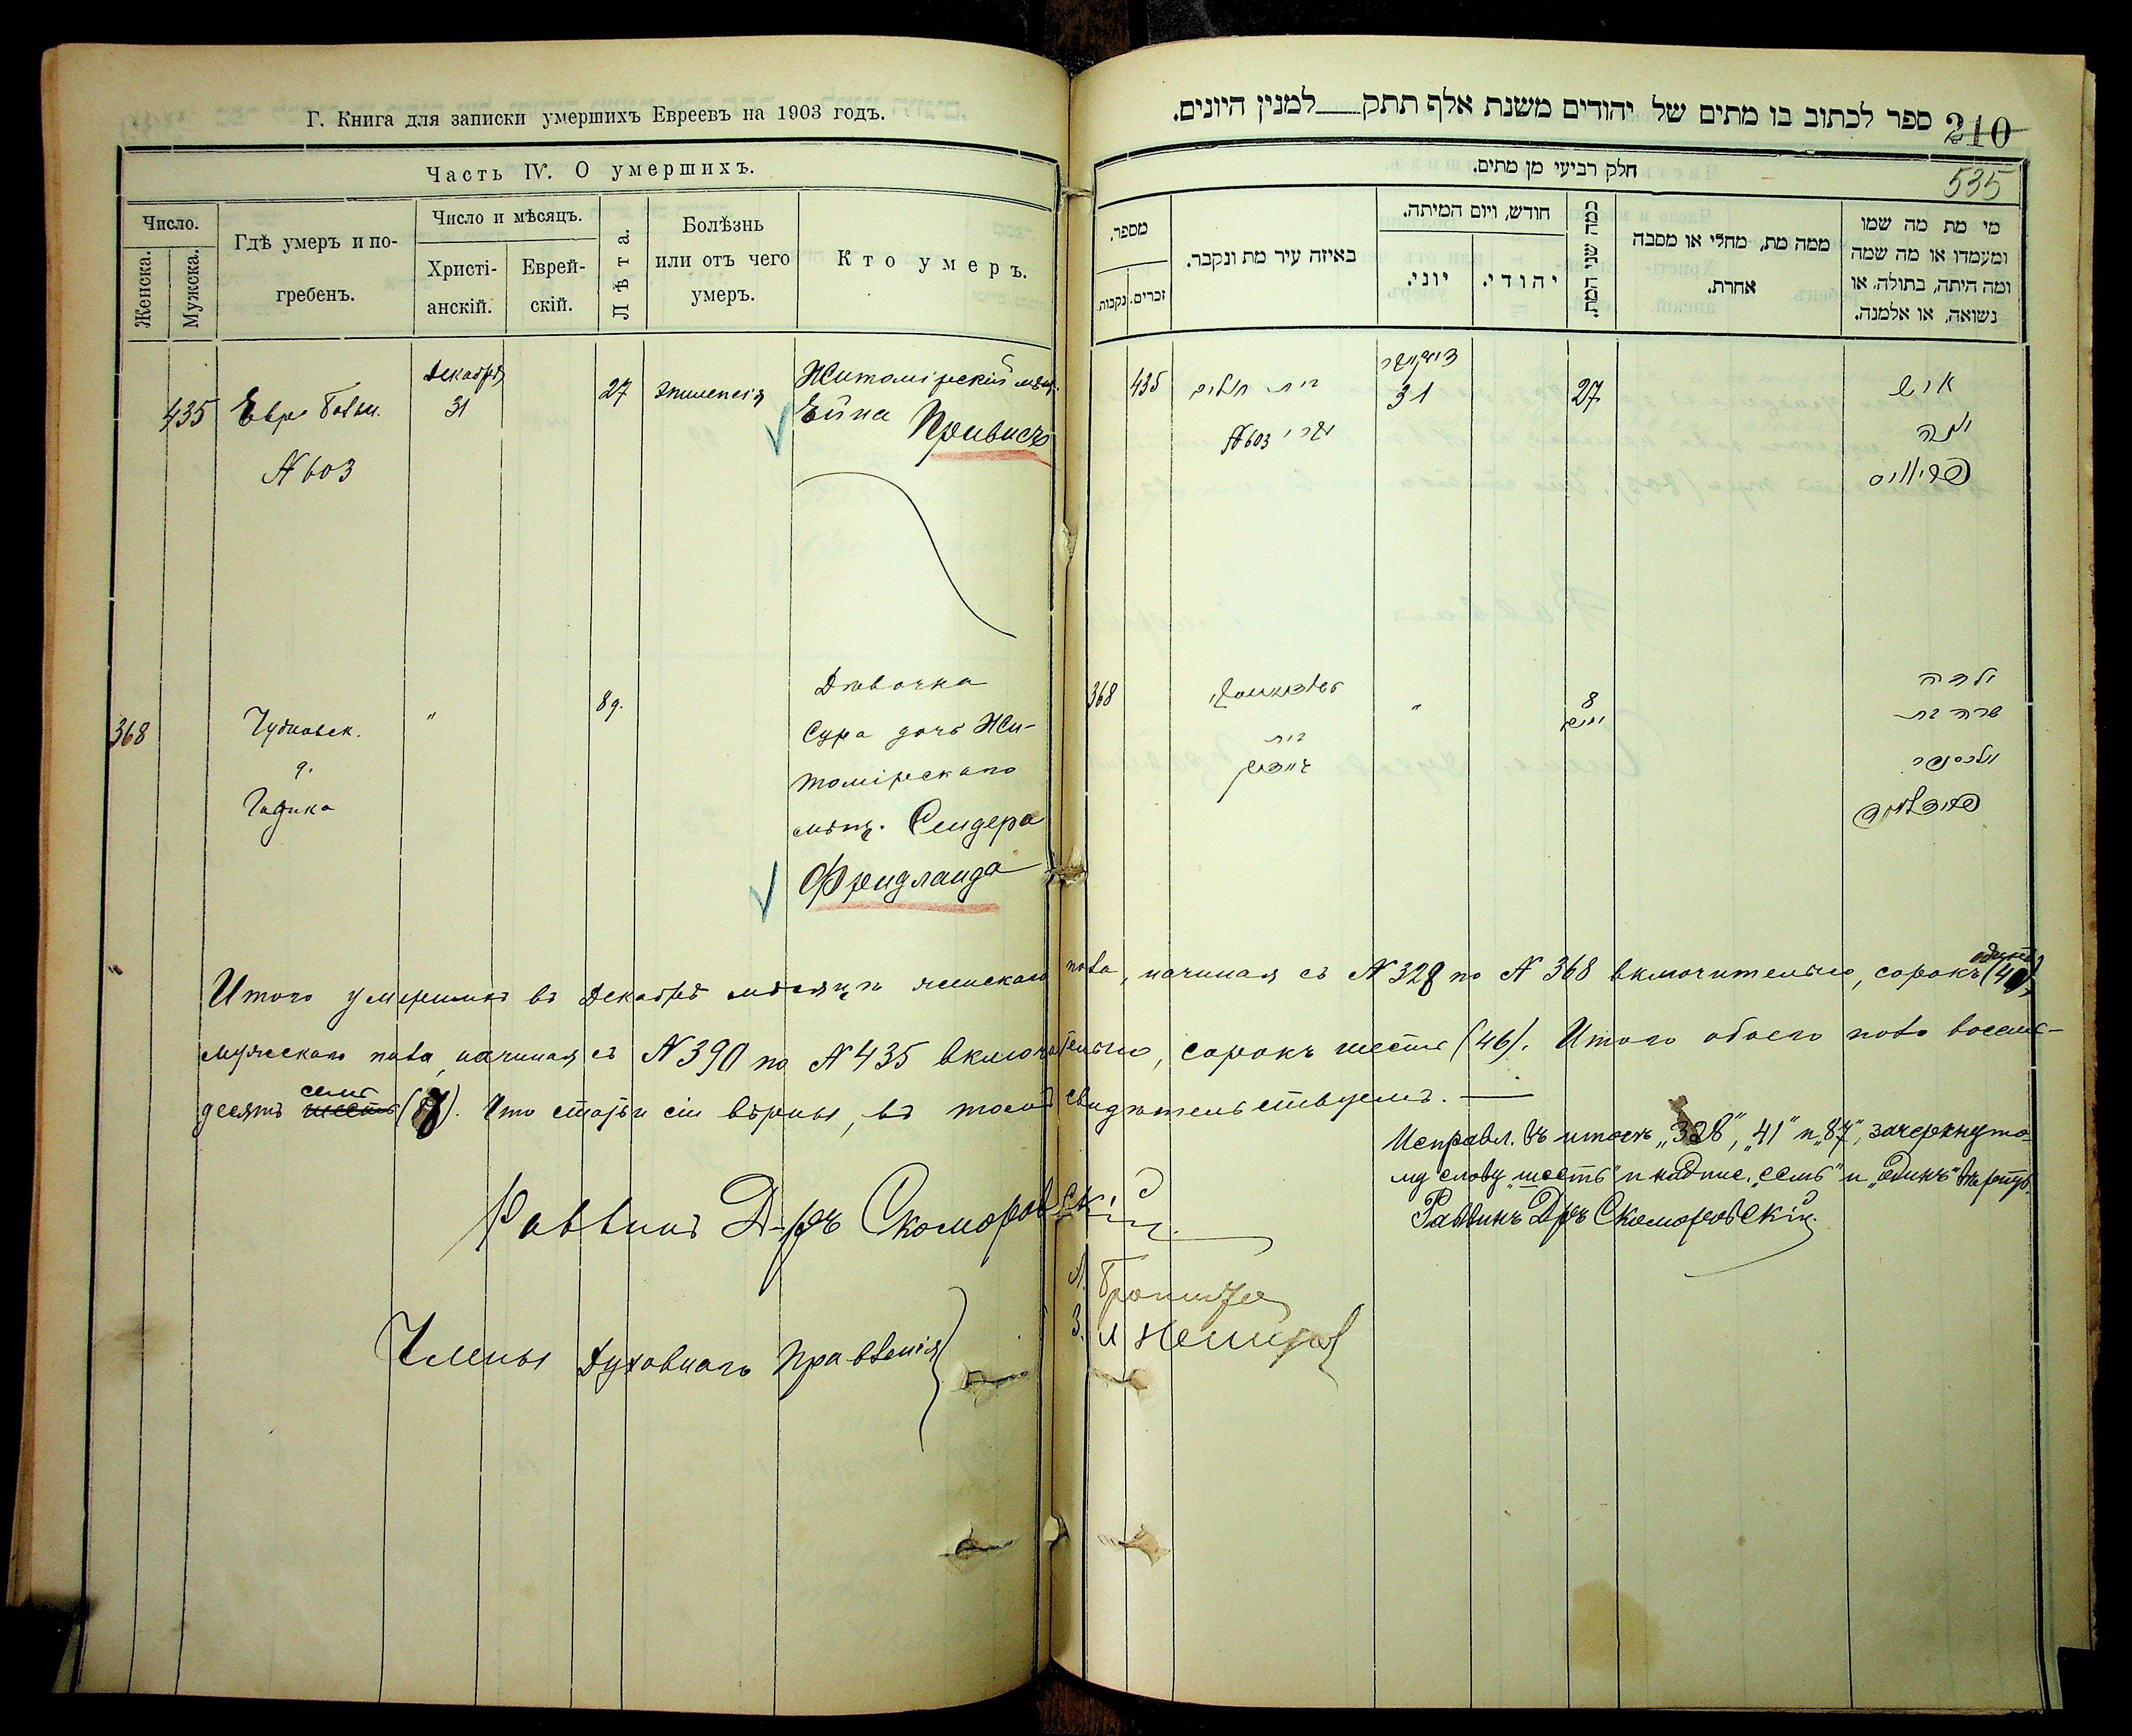 Г. Книга для записки умершихъ Евреевъ на 1903 годъ.
Часть IV. О умершихъ.
Число.
Женска.
Мужска.
Гдѣ умеръ и по-
гребенъ.
Число и мѣсяцъ.
Христі-
анскій.
Еврей-
скій.
Лѣта.
Болѣзнь
или отъ чего
умеръ.
Кто умеръ.
435
Евр. Больн.
N 603
Декабря
31
27
эпилепсія
Житомірскій мѣщ.
368
Чудновск.
"
8 д.
Дѣвочка
Сура дочь Жи-
томірскаго
мѣщ. Сендера
Фридланда
ספר לכתוב בו מתים של יהודים משנת אלף תתק למנין היונים.
210
535
חלק רביעי מן מתים.
מספר.
זכרים.
נקבות.
באיזה עיר מת ונקבר.
חודש, ויום המיתה.
יוני.
יהודי.
כמה שני המת.
ממה מת, מחלי או מסבה
אחרת.
מי מת מה שמו
ומעמדו או מה שמה
ומה היתה, בתולה, או
נשואה, או אלמנה.
435
בית חולים
N 603
דעקאבער
31
27
איש
368
בית
"
8
ילדה
שרה בת
Итого умершихъ въ Декабрѣ мѣсяцѣ женскаго пола, начиная съ N 328 по N 368 включительно, сорокъ одинъ (41)
мужскаго пола, начиная съ N 390 по N 435 включительно, сорокъ шесть (46). Итого обоего пола восемь-
десятъ шесть семь (87). Что статьи сіи вѣрны, въ томъ свидѣтельствуемъ.
Раввинъ Д-ръ Скоморовскій
Исправл. въ итогѣ „328", „41" и „87", зачеркнуто-
му слову „шесть" и надпис. „семь" и „одинъ" вѣрить.
Раввинъ Д-ръ Скоморовскій
Члены Духовнаго Правленія